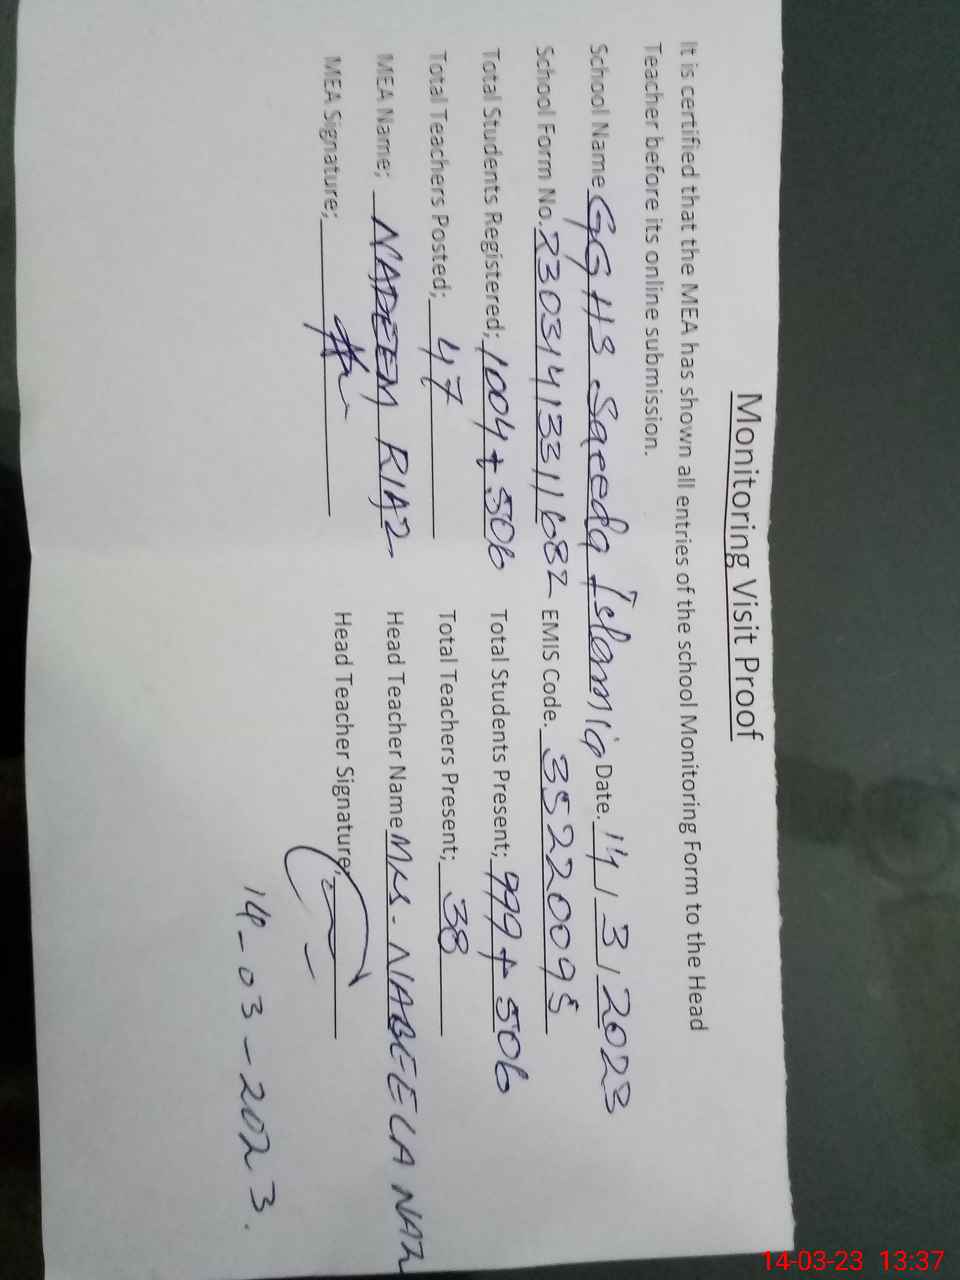 Monitoring Visit Proof
It is certified that the MEA has shown all entries of the school Monitoring Form to the Head
Teacher before its online submission.
School Name GGHS Saeeda Islamia Date. 14/3/2023
School Form No. 23031413311682 EMIS Code. 35220095
Total Students Registered; 1004 + 506 Total Students Present; 999 + 506
Total Teachers Posted; 47 Total Teachers Present; 38
MEA Name; NADEEM RIAZ Head Teacher Name Mrs. NABEELA NAZ
MEA Signature; Head Teacher Signature;
14-03-2023.
14-03-23 13:37